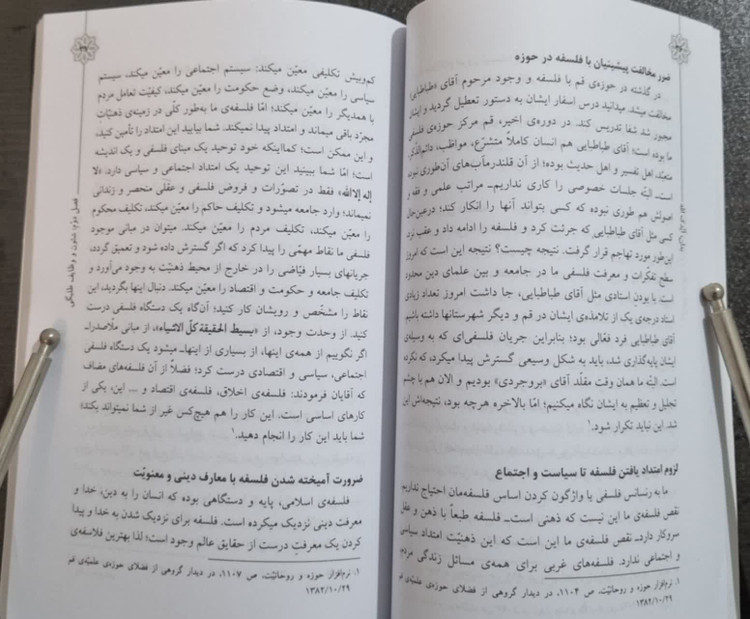 ضرر مخالفت پیشینیان با فلسفه در حوزه
در گذشته در حوزه‌ی قم با فلسفه و وجود مرحوم آقای «طباطبایی»
مخالفت میشد. میدانید درس اسفار ایشان به دستور تعطیل گردید و ایشان
مجبور شد شفا تدریس کند. در دوره‌ی اخیر، قم مرکز حوزه‌ی فلسفی
ما بوده است؛ آقای طباطبایی هم انسان کاملاً متشرّع، مواظب، دائم‌الذّکر،
متعبّد، اهل تفسیر و اهل حدیث بوده؛ از آن قلندرمآب‌های آن‌طوری نبوده
است. البتّه جلسات خصوصی را کاری نداریم. مراتب علمی و فقه و
اصولش هم طوری نبوده که کسی بتواند آنها را انکار کند؛ درعین‌حال
کسی مثل آقای طباطبایی که جرئت کرد و فلسفه را ادامه داد و عقب نزد،
این‌طور مورد تهاجم قرار گرفت. نتیجه چیست؟ نتیجه این است که امروز
سطح تفکّرات و معرفت فلسفی ما در جامعه و بین علمای دین محدود
است. با بودن استادی مثل آقای طباطبایی، جا داشت امروز تعداد زیادی
استاد درجه‌ی یک از تلامذه‌ی ایشان در قم و دیگر شهرستانها داشته باشیم.
آقای طباطبایی فرد فعّالی بود؛ بنابراین جریان فلسفی‌ای که به وسیله‌ی
ایشان پایه‌گذاری شد، باید به شکل وسیعی گسترش پیدا میکرد، که نکرده
است. البتّه ما همان وقت مقلّد آقای «بروجردی» بودیم و الان هم با چشم
تجلیل و تعظیم به ایشان نگاه میکنیم؛ امّا بالاخره هرچه بود، نتیجه‌اش این
شد. این نباید تکرار شود.۱
لزوم امتداد یافتن فلسفه تا سیاست و اجتماع
ما به رنسانس فلسفی یا واژگون کردن اساس فلسفه‌مان احتیاج نداریم.
نقص فلسفه‌ی ما این نیست که ذهنی است ـ فلسفه طبعاً با ذهن و عقل
سروکار دارد ـ نقص فلسفه‌ی ما این است که این ذهنیّت امتداد سیاسی
و اجتماعی ندارد. فلسفه‌های غربی برای همه‌ی مسائل زندگی مردم
۱. نرم‌افزار حوزه و روحانیّت، ص ۱۱۰۴، در دیدار گروهی از فضلای حوزه‌ی علمیّه‌ی قم
۱۳۸۲/۱۰/۲۹
کم‌وبیش تکلیفی معیّن میکند: سیستم اجتماعی را معیّن میکند، سیستم
سیاسی را معیّن میکند، وضع حکومت را معیّن میکند، کیفیّت تعامل مردم
با همدیگر را معیّن میکند؛ امّا فلسفه‌ی ما به‌طور کلّی در زمینه‌ی ذهنیّات
مجرّد باقی میماند و امتداد پیدا نمیکند. شما بیایید این امتداد را تأمین کنید،
و این ممکن است؛ کمااینکه خود توحید یک مبنای فلسفی و یک اندیشه
است؛ امّا شما ببینید این توحید یک امتداد اجتماعی و سیاسی دارد. «لا
إله إلا الله» فقط در تصوّرات و فروض فلسفی و عقلی منحصر و زندانی
نمیماند؛ وارد جامعه میشود و تکلیف حاکم را معیّن میکند، تکلیف محکوم
را معیّن میکند، تکلیف مردم را معیّن میکند. میتوان در مبانی موجود
فلسفی ما نقاط مهمّی را پیدا کرد که اگر گسترش داده شود و تعمیق گردد،
جریانهای بسیار فیّاضی را در خارج از محیط ذهنیّت به وجود می‌آورد و
تکلیف جامعه و حکومت و اقتصاد را معیّن میکند. دنبال اینها بگردید، این
نقاط را مشخّص و رویشان کار کنید؛ آن‌گاه یک دستگاه فلسفی درست
کنید. از وحدت وجود، از «بسیط الحقیقة کلّ الاشیاء»، از مبانی ملاصدراـ
اگر نگوییم از همه‌ی اینها، از بسیاری از اینهاـ میشود یک دستگاه فلسفی
اجتماعی، سیاسی و اقتصادی درست کرد؛ فضلاً از آن فلسفه‌های مضاف
که آقایان فرمودند: فلسفه‌ی اخلاق، فلسفه‌ی اقتصاد و .... این، یکی از
کارهای اساسی است. این کار را هم هیچ‌کس غیر از شما نمیتواند بکند؛
شما باید این کار را انجام دهید.۱
ضرورت آمیخته شدن فلسفه با معارف دینی و معنویّت
فلسفه‌ی اسلامی، پایه و دستگاهی بوده که انسان را به دین، خدا و
معرفت دینی نزدیک میکرده است. فلسفه برای نزدیک شدن به خدا و پیدا
کردن یک معرفتِ درست از حقایق عالم وجود است؛ لذا بهترین فلاسفه‌ی
۱. نرم‌افزار حوزه و روحانیّت، ص ۱۱۰۷، در دیدار گروهی از فضلای حوزه‌ی علمیّه‌ی قم
۱۳۸۲/۱۰/۲۹
فصل دوم: شئون و وظایف طلبگی